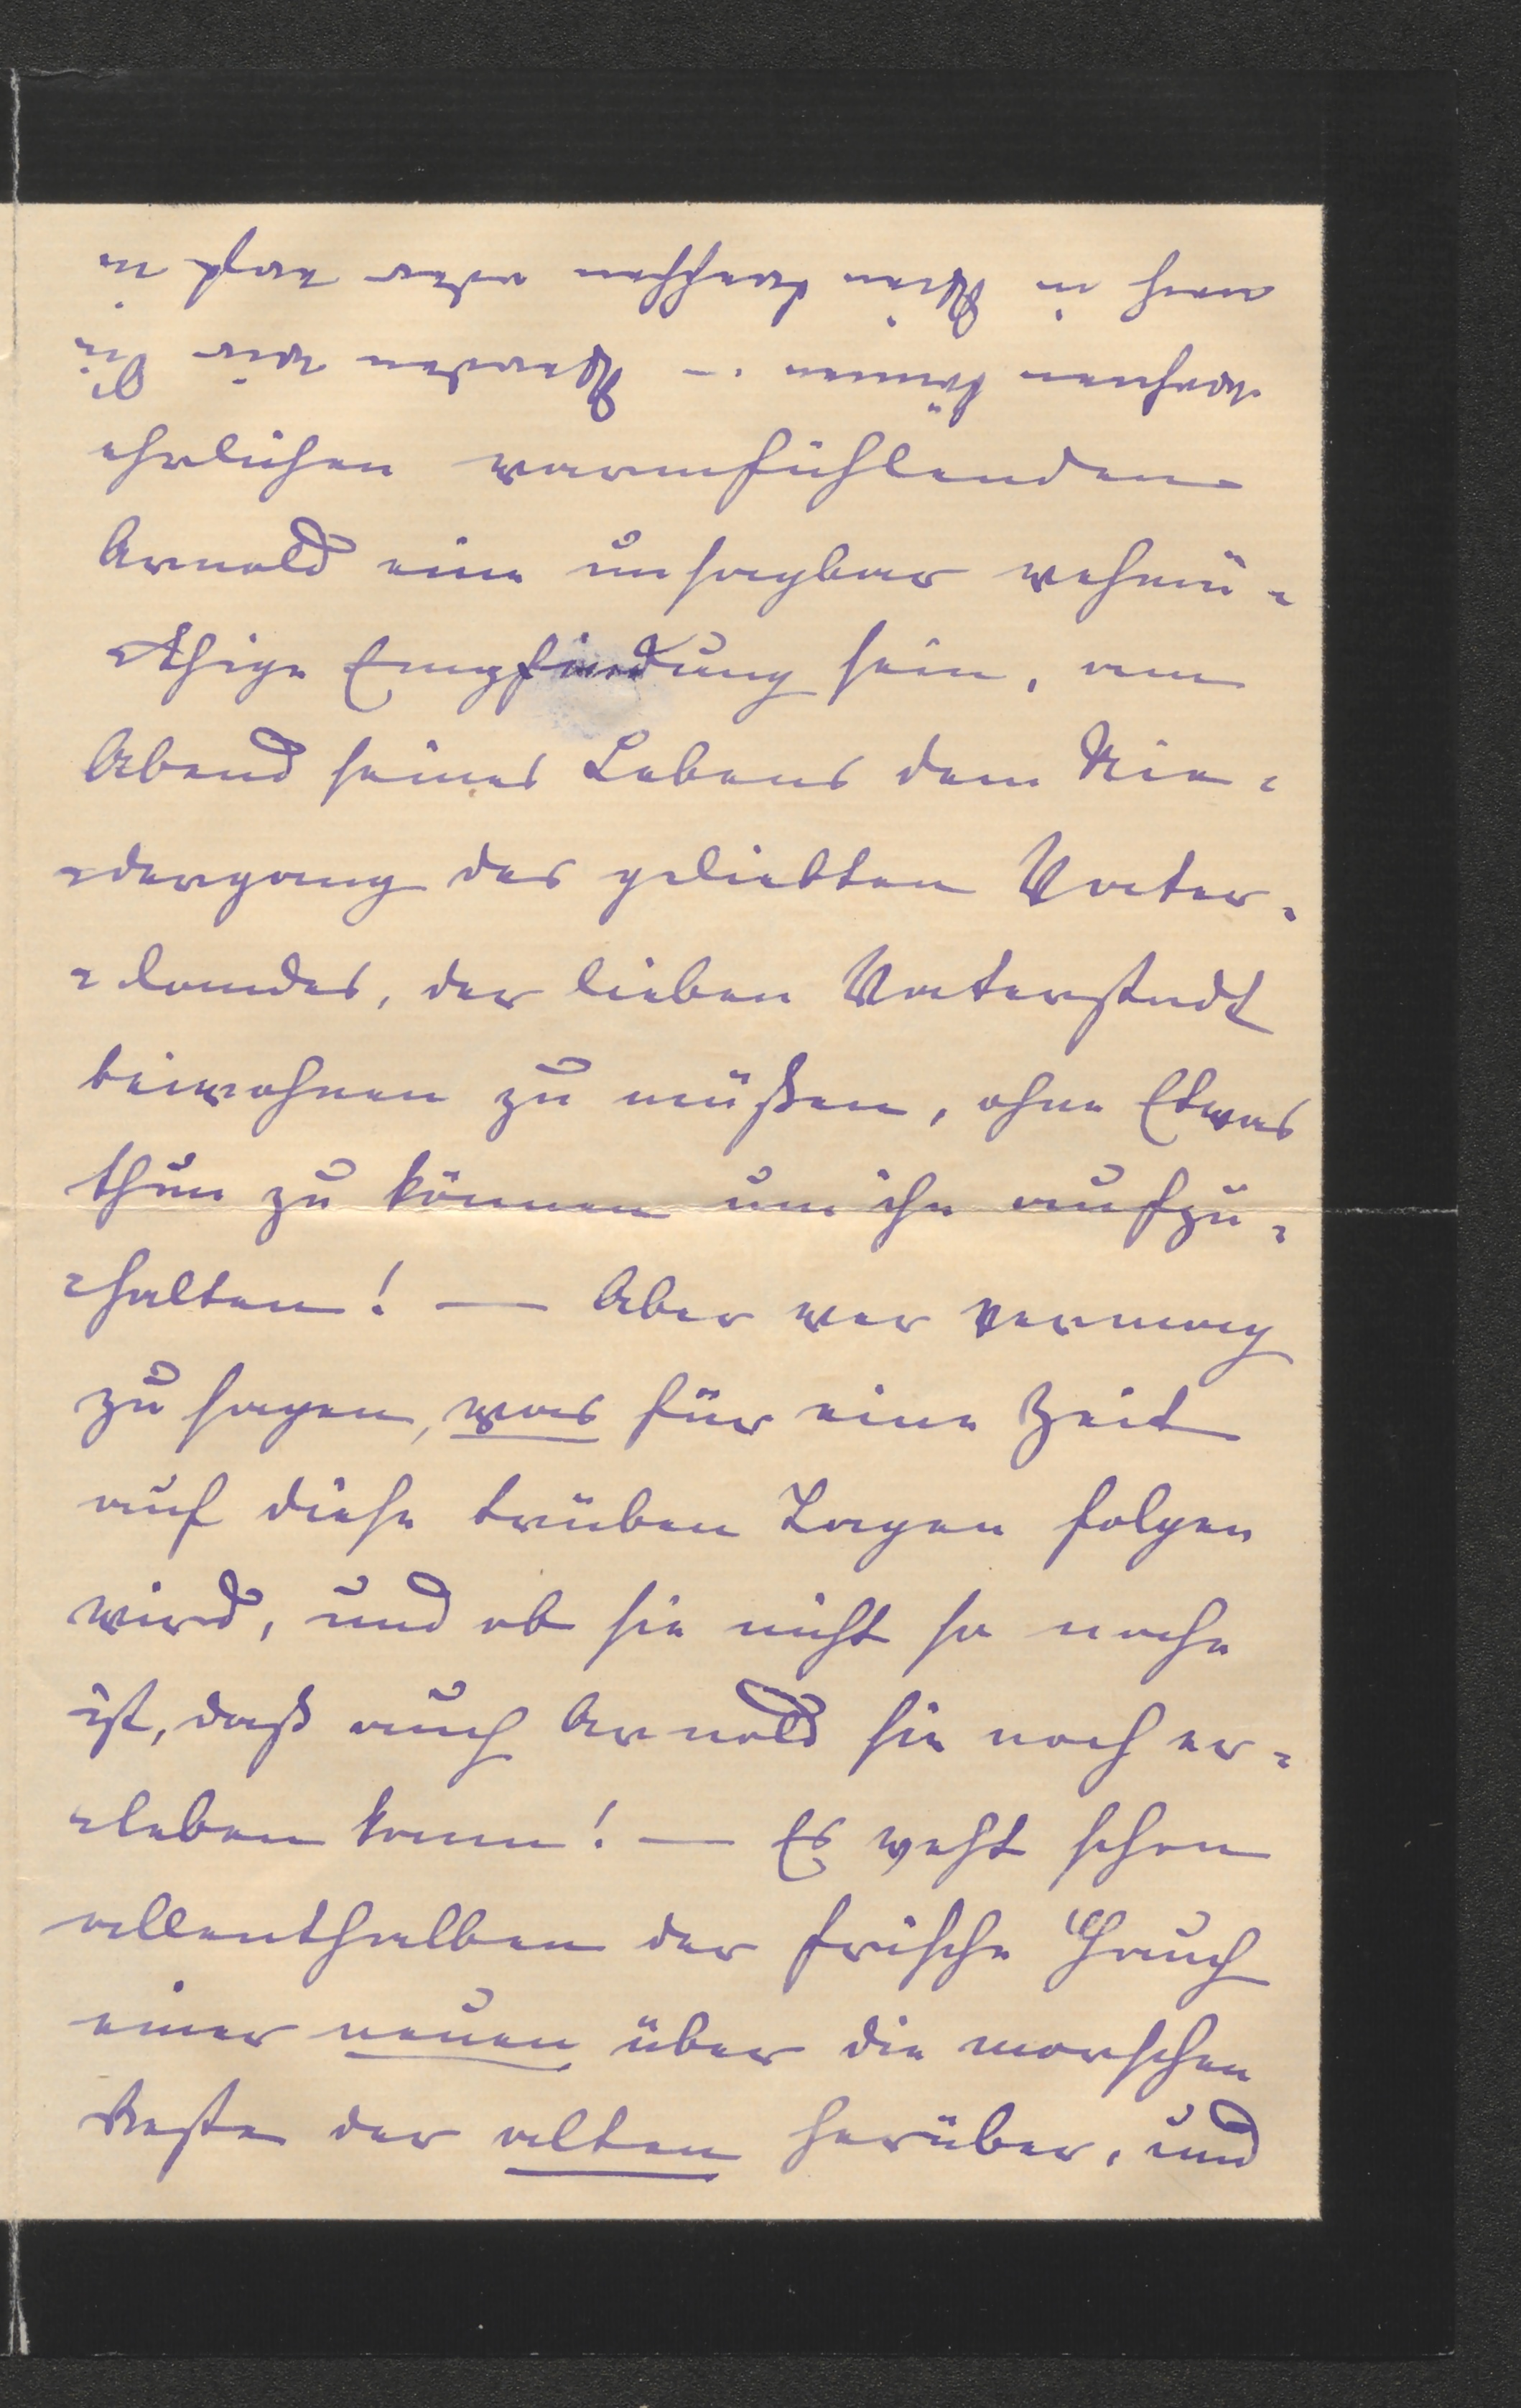 können. – Werden wir Sie
noch in Wien treffen oder erst in
ehrlichen warmfühlenden
Arnold eine unsagbar wehmü-
-thige Empfindung sein, am
Abend seines Lebens dem Nie-
-dergang des geliebten Vater-
-landes, der lieben Vaterstadt
beiwohnen zu müßen, ohne Etwas
thun zu können um ihn aufzu-
-halten! — Aber wer vermag
zu sagen, was für eine Zeit
auf diese trüben Tagen folgen
wird, und ob sie nicht so nahe
ist, daß auch Arnold sie noch er-
-leben kann! — Es weht schon
allenthalben der frische Hauch
einer neuen über die morschen
Reste der alten herüber, und